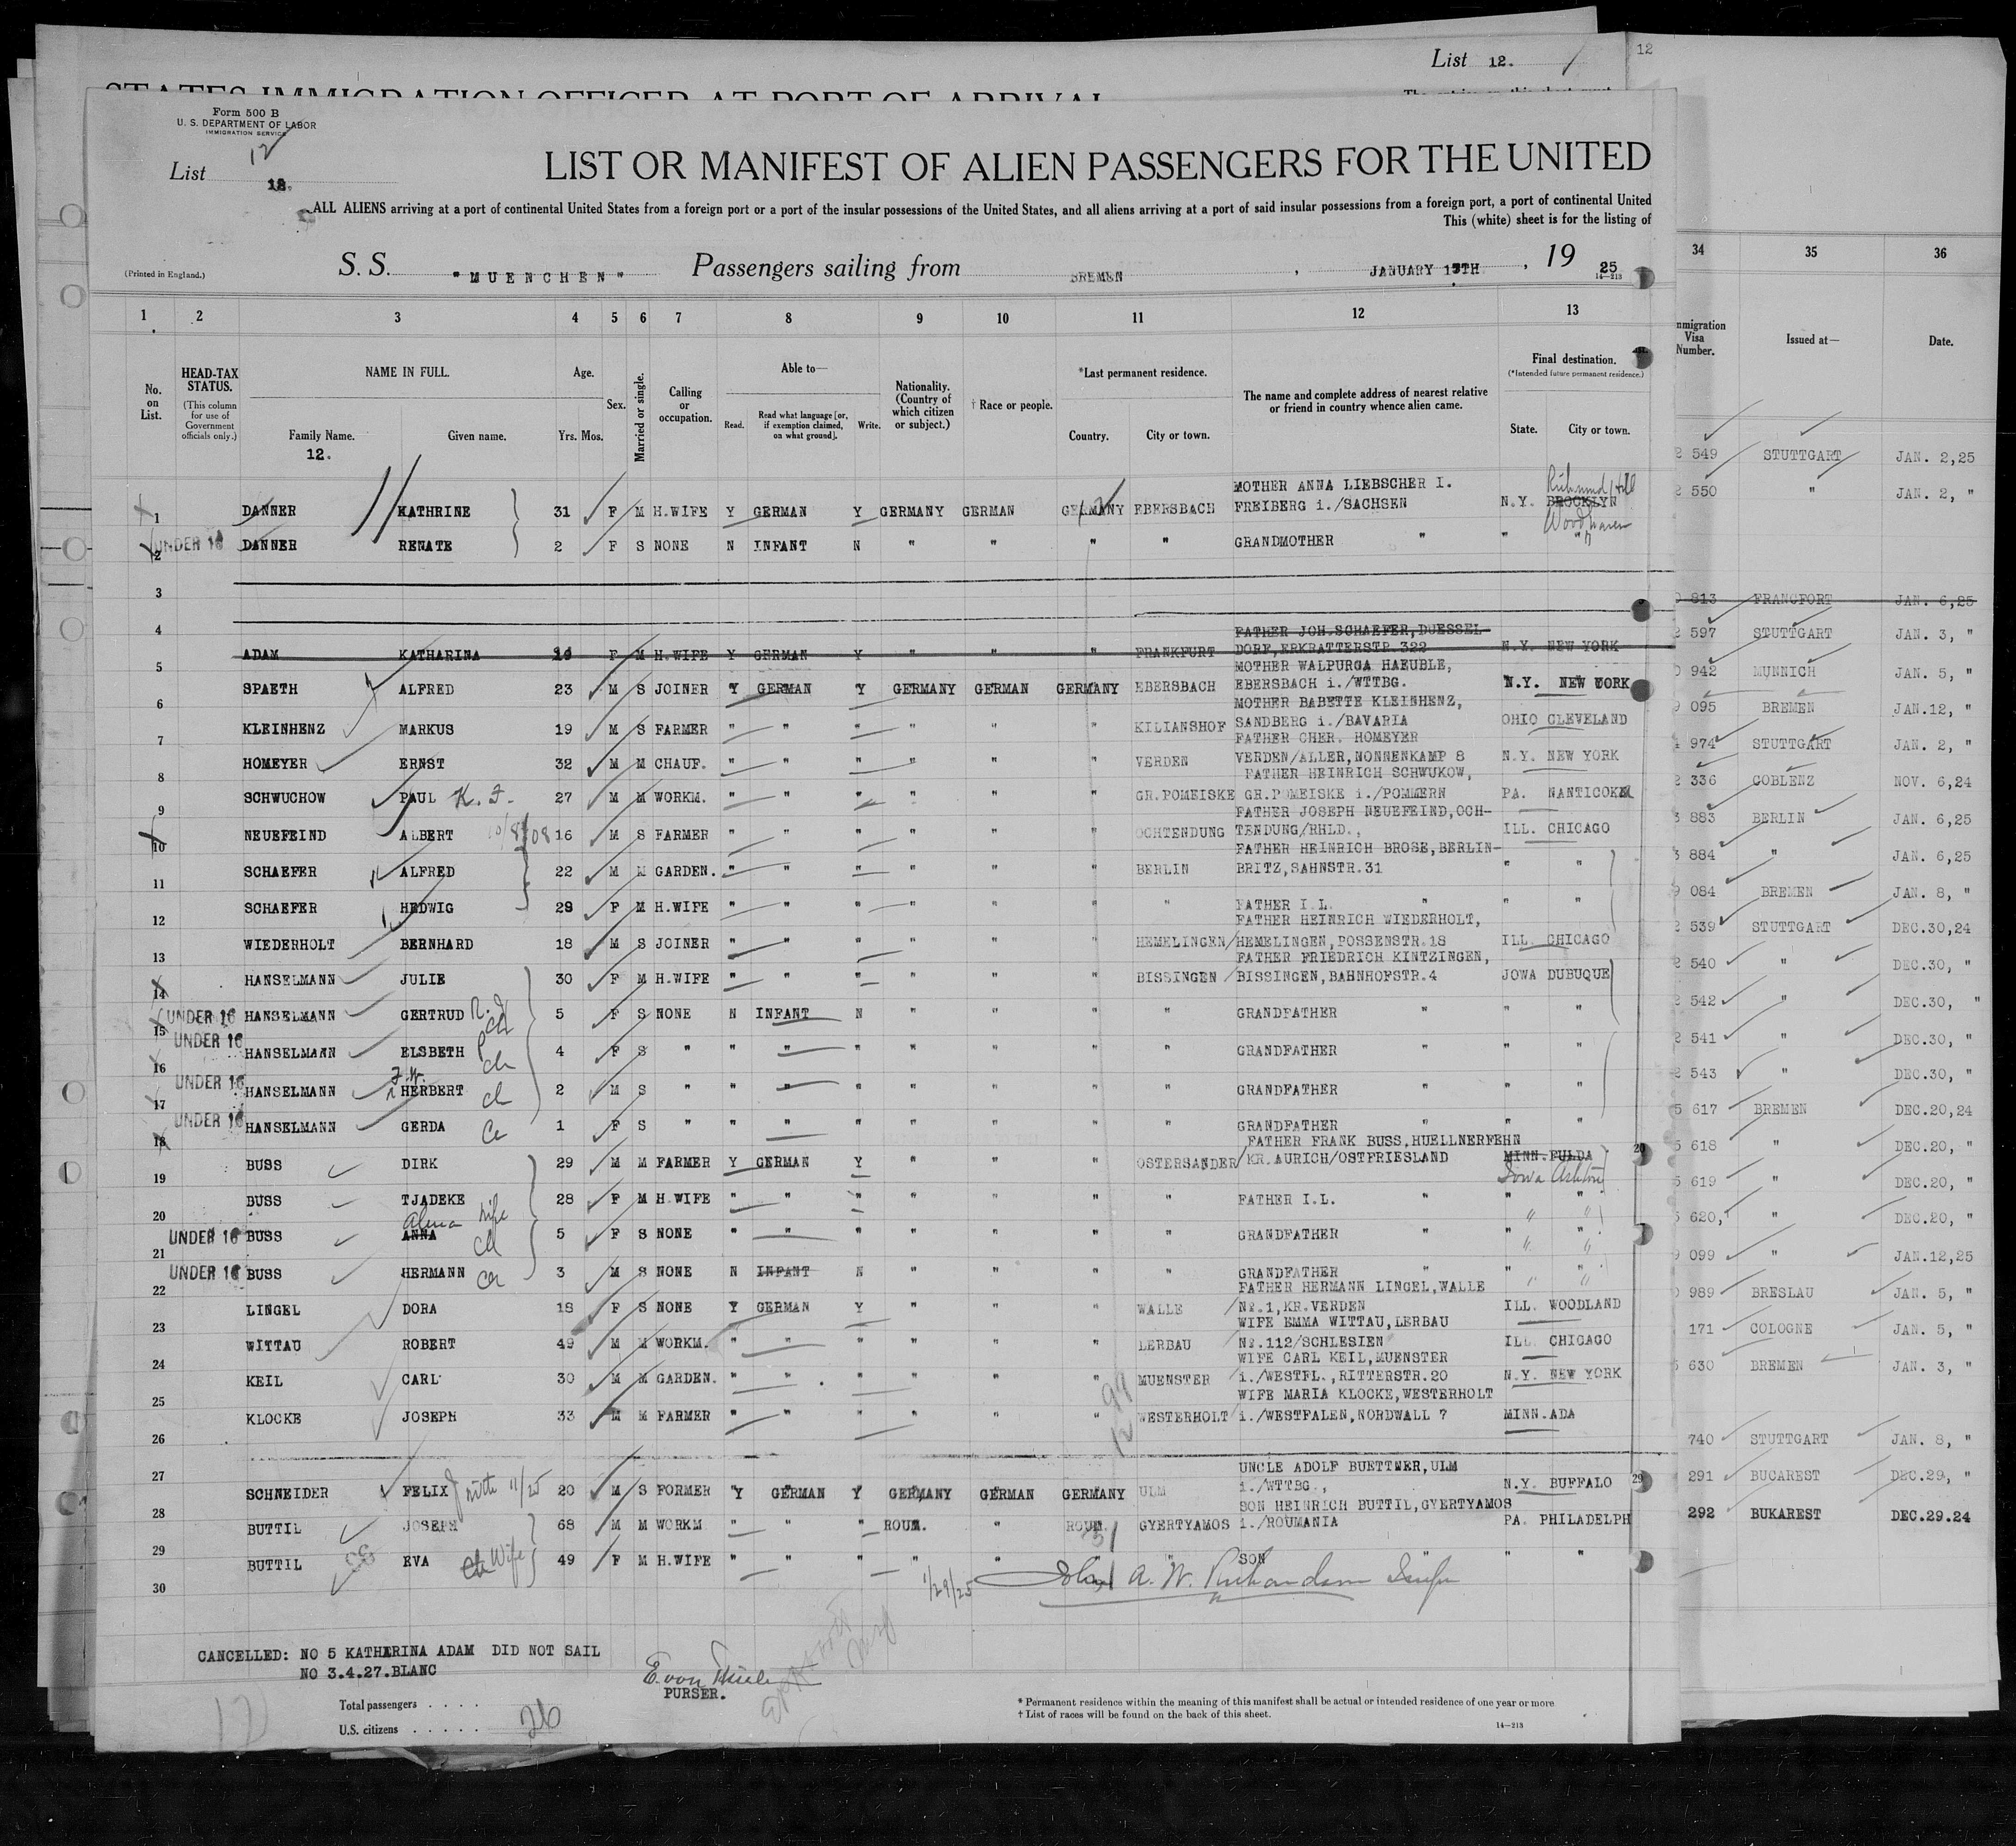 List 12.
12
Form 500 B
U. S. DEPARTMENT OF LABOR
IMMIGRATION SERVICE
12
List 12.
LIST OR MANIFEST OF ALIEN PASSENGERS FOR THE UNITED
ALL ALIENS arriving at a port of continental United States from a foreign port or a port of the insular possessions of the United States, and all aliens arriving at a port of said insular possessions from a foreign port, a port of continental United
This (white) sheet is for the listing of
(Printed in England.) S. S. "MUENCHEN" Passengers sailing from BREMEN, JANUARY 15TH, 1925
14—213
1 2 3 4 5 6 7 8 9 10 11 12 13 34 35 36
No. on List. HEAD-TAX STATUS. (This column for use of Government officials only.) NAME IN FULL. Family Name. Given name. Age. Yrs. Mos. Sex. Married or single. Calling or occupation. Able to— Read. Read what language [or, if exemption claimed, on what ground]. Write. Nationality. (Country of which citizen or subject.) † Race or people. *Last permanent residence. Country. City or town. The name and complete address of nearest relative or friend in country whence alien came. Final destination. (*Intended future permanent residence.) State. City or town. mmigration Visa Number. Issued at— Date.
12.
MOTHER ANNA LIEBSCHER I. Richmond Hill
1 DANNER KATHRINE 31 F M H.WIFE Y GERMAN Y GERMANY GERMAN GERMANY EBERSBACH FREIBERG i./SACHSEN N.Y. BROOKLYN
Woodhaven
2 UNDER 16 DANNER RENATE 2 F S NONE N INFANT N " " " " GRANDMOTHER " " "
3
4
FATHER JOH.SCHAEFER,DUESSEL-
5 ADAM KATHARINA F M H.WIFE Y GERMAN Y " " " FRANKFURT DORF,ERKRATTERSTR.322 N.Y. NEW YORK
MOTHER WALPURGA HAEUBLE,
6 SPAETH ALFRED 23 M S JOINER Y GERMAN Y GERMANY GERMAN GERMANY EBERSBACH EBERSBACH i./WTTBG. N.Y. NEW YORK
MOTHER BABETTE KLEINHENZ,
7 KLEINHENZ MARKUS 19 M S FARMER " " " " " " KILIANSHOF SANDBERG i./BAVARIA OHIO CLEVELAND
FATHER CHER. HOMEYER
8 HOMEYER ERNST 32 M M CHAUF. " " " " " " VERDEN VERDEN/ALLER,NONNENKAMP 8 N.Y. NEW YORK
FATHER HEINRICH SCHWUKOW,
9 SCHWUCHOW PAUL K. F. 27 M M WORKM. " " " " " " GR.POMEISKE GR.POMEISKE i./POMMERN PA. NANTICOKE
FATHER JOSEPH NEUEFEIND,OCH-
10 NEUEFEIND ALBERT 16 M S FARMER " " " " " " OCHTENDUNG TENDUNG/RHLD., ILL. CHICAGO
FATHER HEINRICH BROSE,BERLIN-
11 SCHAEFER ALFRED 22 M M GARDEN. " " " " " " BERLIN BRITZ,SAHNSTR.31 " "
12 SCHAEFER HEDWIG 28 F M H.WIFE " " " " " " " FATHER I.L. " " "
FATHER HEINRICH WIEDERHOLT,
13 WIEDERHOLT BERNHARD 18 M S JOINER " " " " " " HEMELINGEN HEMELINGEN,POSSENSTR.18 ILL. CHICAGO
FATHER FRIEDRICH KINTZINGEN,
14 HANSELMANN JULIE 30 F M H.WIFE " " " " " " BISSINGEN BISSINGEN,BAHNHOFSTR.4 JOWA DUBUQUE
15 UNDER 16 HANSELMANN GERTRUD R. ch 5 F S NONE N INFANT N " " " " GRANDFATHER " " "
16 UNDER 16 HANSELMANN ELSBETH P ch 4 F S " " " " " " " " GRANDFATHER " " "
17 UNDER 16 HANSELMANN F.W. HERBERT ch 2 M S " " " " " " " " GRANDFATHER " " "
18 UNDER 16 HANSELMANN GERDA Ch 1 F S " " " " " " " " GRANDFATHER " " "
FATHER FRANK BUSS,HUELLNERFEHN
19 BUSS DIRK 29 M M FARMER Y GERMAN Y " " " OSTERSANDER KR.AURICH/OSTFRIESLAND MINN.FULDA 20
Iowa Ashton
20 BUSS TJADEKE wife 28 F M H.WIFE " " " " " " " FATHER I.L. " " "
21 UNDER 16 BUSS Alma ANNA ch 5 F S NONE " " " " " " " GRANDFATHER " " "
22 UNDER 16 BUSS HERMANN ch 3 M S NONE N INFANT N " " " " GRANDFATHER " " "
FATHER HERMANN LINGEL,WALLE
23 LINGEL DORA 18 F S NONE Y GERMAN Y " " " WALLE Nr.1,KR.VERDEN ILL. WOODLAND
WIFE EMMA WITTAU,LERBAU
24 WITTAU ROBERT 49 M M WORKM. " " " " " " LERBAU Nr.112/SCHLESIEN ILL. CHICAGO
WIFE CARL KEIL,MUENSTER
25 KEIL CARL 30 M M GARDEN. " " " " " " MUENSTER i./WESTFL.,RITTERSTR.20 N.Y. NEW YORK
WIFE MARIA KLOCKE,WESTERHOLT
26 KLOCKE JOSEPH 33 M M FARMER " " " " " " WESTERHOLT i./WESTFALEN,NORDWALL 7 MINN.ADA
27
UNCLE ADOLF BUETTNER,ULM
28 SCHNEIDER FELIX 20 M S FORMER Y GERMAN Y GERMANY GERMAN GERMANY ULM i./WTTBG., N.Y. BUFFALO 29
SON HEINRICH BUTTIL,GYERTYAMOS
29 BUTTIL JOSEPH 68 M M WORKM " " " ROUM. " ROUM. GYERTYAMOS i./ROUMANIA PA. PHILADELPH
30 BUTTIL EVA Wife 49 F M H.WIFE " " " " " " " SON " "
1/29/25 A. W. Richardson
2 549 STUTTGART JAN. 2,25
2 550 " JAN. 2, "
813 FRANCFORT JAN. 6,25
2 597 STUTTGART JAN. 3, "
942 MUNNICH JAN. 5, "
9 095 BREMEN JAN.12, "
974 STUTTGART JAN. 2, "
2 336 COBLENZ NOV. 6,24
3 883 BERLIN JAN. 6,25
3 884 " JAN. 6,25
9 084 BREMEN JAN. 8, "
2 539 STUTTGART DEC.30,24
2 540 " DEC.30, "
2 542 " DEC.30, "
2 541 " DEC.30, "
2 543 " DEC.30, "
5 617 BREMEN DEC.20,24
5 618 " DEC.20, "
5 619 " DEC.20, "
5 620, " DEC.20, "
9 099 " JAN.12,25
989 BRESLAU JAN. 5, "
171 COLOGNE JAN. 5, "
5 630 BREMEN JAN. 3, "
740 STUTTGART JAN. 8, "
291 BUCAREST DEC.29, "
292 BUKAREST DEC.29.24
CANCELLED: NO 5 KATHARINA ADAM DID NOT SAIL
NO 3.4.27.BLANC
E. von Thiele
PURSER.
Total passengers . . . .
U.S. citizens . . . . . 26
* Permanent residence within the meaning of this manifest shall be actual or intended residence of one year or more
† List of races will be found on the back of this sheet.
14—213